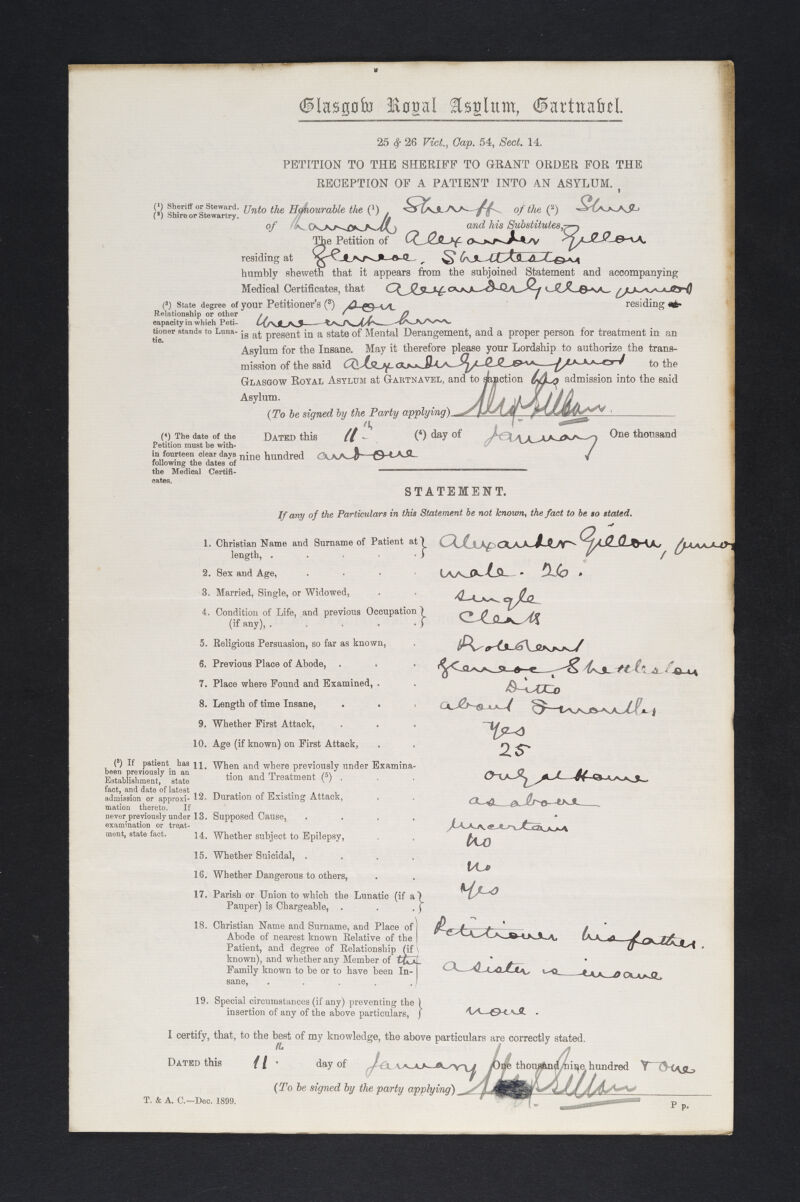 Glasgow Royal Asylum, Gartnavel.
25 & 26 Vict., Cap. 54, Sect. 14.
PETITION TO THE SHERIFF TO GRANT ORDER FOR THE
RECEPTION OF A PATIENT INTO AN ASYLUM.
(1) Sheriff or Steward.
(2) Shire or Stewartry.
Unto the Honourable the (1) Sheriff of the (2) Shire
of Lanark and his Substitutes,
The Petition of Alexander Gillon
residing at Glencoe, Shettleston
humbly sheweth that it appears from the subjoined Statement and accompanying
Medical Certificates, that Alexander Gillon junior
(3) State degree of
Relationship or other
capacity in which Peti-
tioner stands to Luna-
tic.
your Petitioner's (3) son residing at
there with him
is at present in a state of Mental Derangement, and a proper person for treatment in an
Asylum for the Insane. May it therefore please your Lordship to authorize the trans-
mission of the said Alexander Gillon junior to the
GLASGOW ROYAL ASYLUM at GARTNAVEL, and to sanction his admission into the said
Asylum.
(To be signed by the Party applying) Alexr Gillon.
(4) The date of the
Petition must be with-
in fourteen clear days
following the dates of
the Medical Certifi-
cates.
DATED this 11th (4) day of January One thousand
nine hundred and one
STATEMENT.
If any of the Particulars in this Statement be not known, the fact to be so stated.
1. Christian Name and Surname of Patient at
length, . . . . . Alexander Gillon, junior
2. Sex and Age, . . . . male. 26.
3. Married, Single, or Widowed, . . single
4. Condition of Life, and previous Occupation
(if any), . . . . . Clerk
5. Religious Persuasion, so far as known, . Protestant
6. Previous Place of Abode, . . . Glencoe, Shettleston
7. Place where Found and Examined, . . Ditto
8. Length of time Insane, . . . about 8 months
9. Whether First Attack, . . . Yes
10. Age (if known) on First Attack, . . 25
(5) If patient has
been previously in an
Establishment, state
fact, and date of latest
admission or approxi-
mation thereto. If
never previously under
examination or treat-
ment, state fact.
11. When and where previously under Examina-
tion and Treatment (5) . . only at Home
12. Duration of Existing Attack, . . as above
13. Supposed Cause, . . . . uncertain
14. Whether subject to Epilepsy, . . no
15. Whether Suicidal, . . . . no
16. Whether Dangerous to others, . . Yes
17. Parish or Union to which the Lunatic (if a
Pauper) is Chargeable, . . .
18. Christian Name and Surname, and Place of
Abode of nearest known Relative of the
Patient, and degree of Relationship (if
known), and whether any Member of the
Family known to be or to have been In-
sane, . . . . .
Petitioner his father.
a sister is insane
19. Special circumstances (if any) preventing the
insertion of any of the above particulars, none.
I certify, that, to the best of my knowledge, the above particulars are correctly stated.
DATED this 11th day of January One thousand nine hundred & one
(To be signed by the party applying) Alexr Gillon
T. & A. C.—Dec. 1899.
P p.